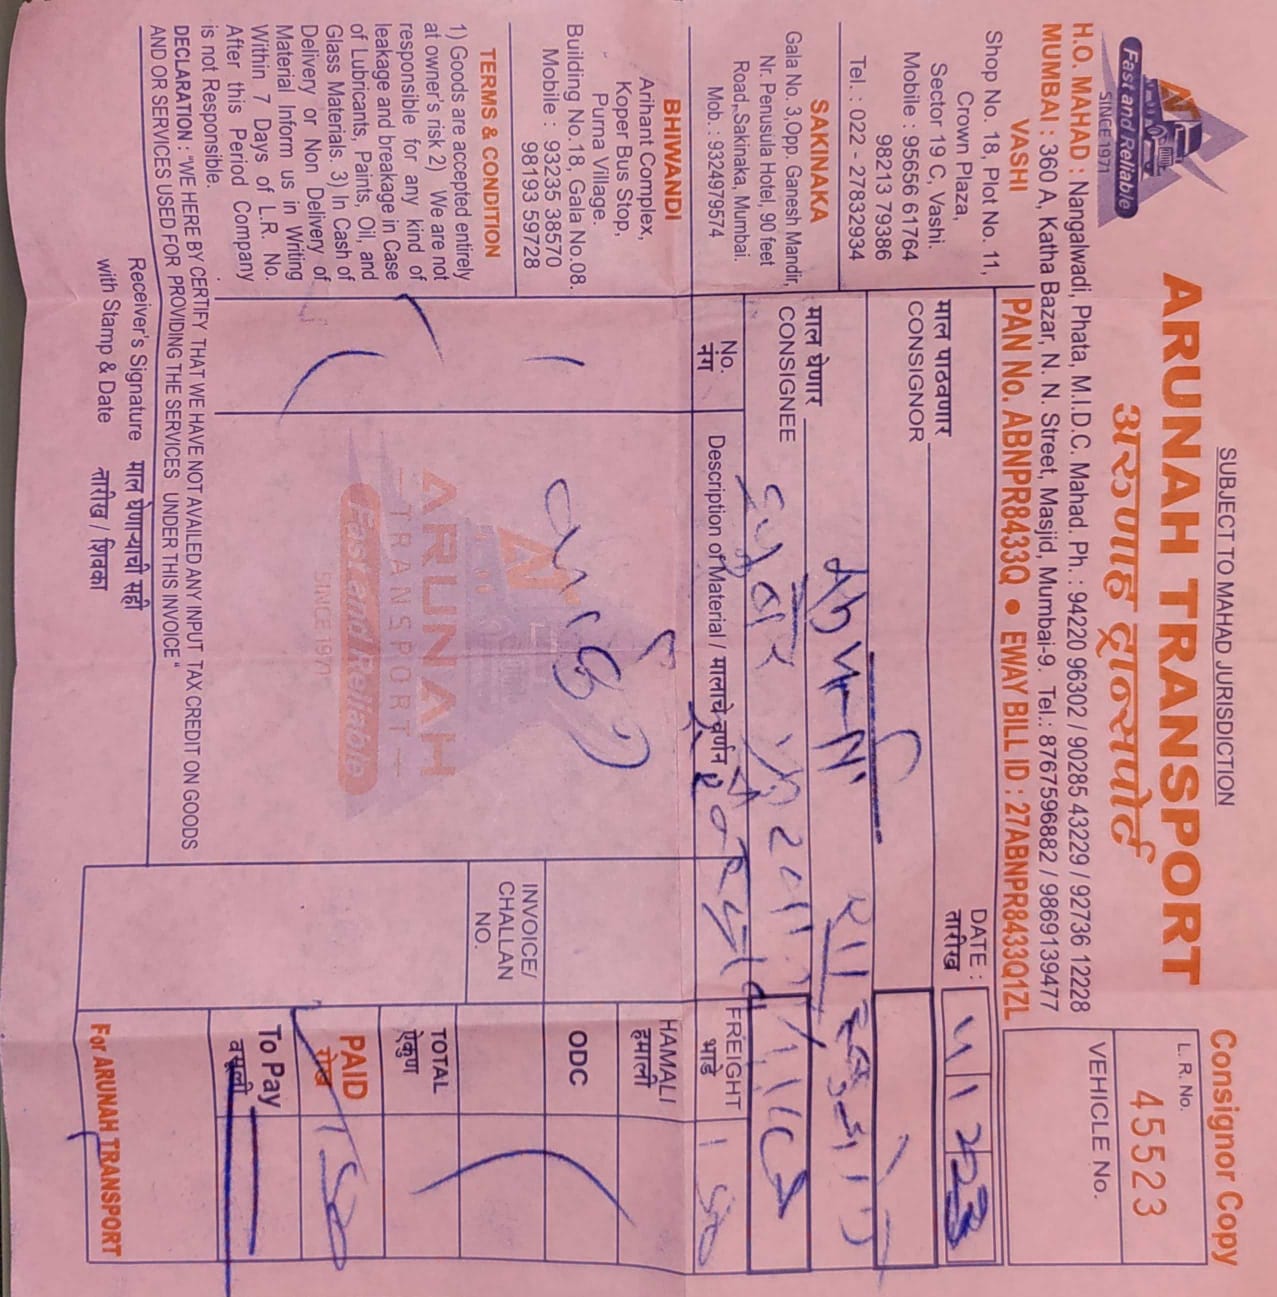 SUBJECT TO MAHAD JURISDICTION
Consignor Copy
ARUNAH TRANSPORT
अरुणाह ट्रान्सपोर्ट
Fast and Reliable
SINCE 1971
L. R. No.
45523
VEHICLE No.
H.O. MAHAD : Nangalwadi, Phata, M.I.D.C. Mahad. Ph. : 94220 96302 / 90285 43229 / 92736 12228
MUMBAI : 360 A, Katha Bazar, N. N. Street, Masjid, Mumbai-9. Tel.: 8767596882 / 9869139477
PAN No. ABNPR8433Q ● EWAY BILL ID : 27ABNPR8433Q1ZL
VASHI
Shop No. 18, Plot No. 11,
Crown Plaza,
Sector 19 C, Vashi.
Mobile : 95656 61764
98213 79386
Tel. : 022 - 27832934
SAKINAKA
Gala No. 3,Opp. Ganesh Mandir,
Nr. Penusula Hotel, 90 feet
Road,,Sakinaka, Mumbai.
Mob. : 9324979574
BHIWANDI
Arihant Complex,
Koper Bus Stop,
Purna Village.
Building No.18, Gala No.08.
Mobile : 93235 38570
98193 59728
TERMS & CONDITION
1) Goods are accepted entirely
at owner's risk 2) We are not
responsible for any kind of
leakage and breakage in Case
of Lubricants, Paints, Oil, and
Glass Materials. 3) In Cash of
Delivery or Non Delivery of
Material Inform us in Writing
Within 7 Days of L.R. No.
After this Period Company
is not Responsible.
DATE :
तारीख
माल पाठवणार
CONSIGNOR
माल घेणार
CONSIGNEE
No.
नंग
Description of Material / मालाचे वर्णन
FREIGHT
भाडे
HAMALI
हमाली
ODC
INVOICE/
CHALLAN
NO.
TOTAL
ऐकुण
PAID
रोख
To Pay
वसूली
ARUNAH
TRANSPORT
Fast and Reliable
SINCE 1971
For ARUNAH TRANSPORT
DECLARATION : "WE HERE BY CERTIFY THAT WE HAVE NOT AVAILED ANY INPUT TAX CREDIT ON GOODS
AND OR SERVICES USED FOR PROVIDING THE SERVICES UNDER THIS INVOICE"
Receiver's Signature माल घेणाऱ्याची सही
with Stamp & Date तारीख / शिक्का